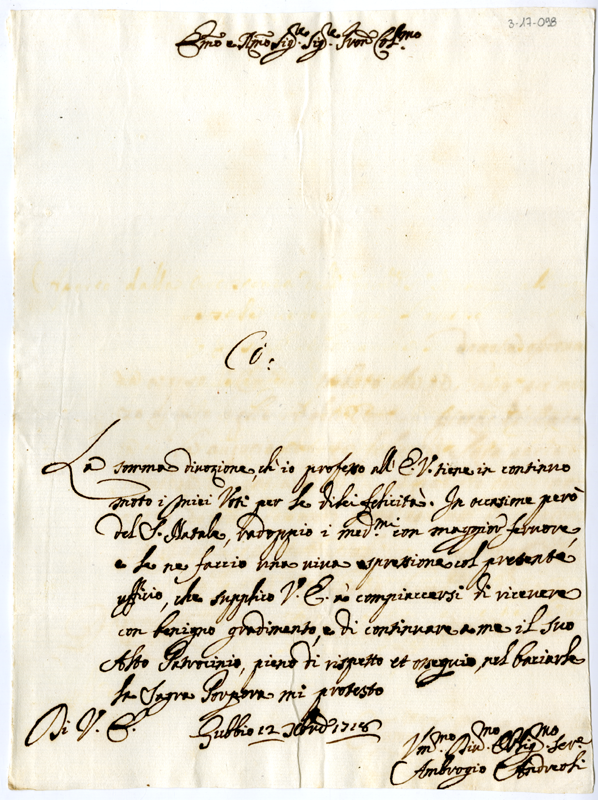 3-17-098
Emo e Rmo Sigre Sigre Pron Colmo
Co:
La somma divozione, ch'io professo all'E.V. tiene in continuo
moto i miei Voti per le di lei felicità. In occasione però
del S. Natale, radoppio i medmi con maggior fervore,
e le ne faccio una viva espressione col presente
uffizio, che supplico V. E. à compiacersi di ricevere
con benigno gradimento, e di continuare a me il suo
Alto Patrocinio, pieno di rispetto et ossequio, nel baciarle
la Sagra Porpora mi protesto
Di V. E. Gubbio 12 Xbre 1718
Vmo Divmo Obligmo Serre
Ambrogio Andreoli